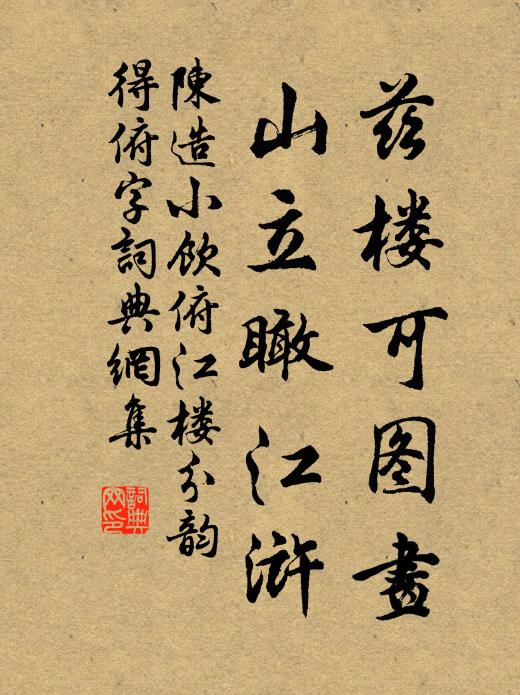 兹楼可图畫
山立瞰江浒
陳造小飲俯江楼分韵
得俯字詞典網集
詞典網印